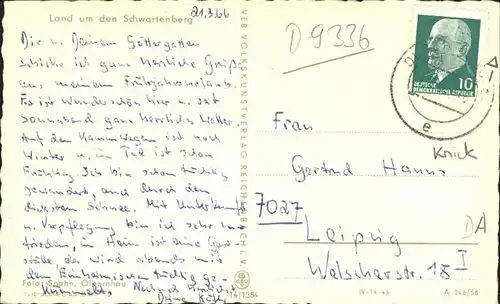 Land um den Schwartenberg
21.3.66
Dir u. Deinem Göttergatten
schicke ich ganz herzliche Grüße
aus meinem Frühjahrsurlaub.
Es ist wunderschön hier u. seit
Sonnabend ganz herrliches Wetter.
Auf den Kammwegen ist noch
Winter u. im Tal ist schon
Frühling. Ich bin schon tüchtig
gewandert, auch durch den
dicksten Schnee. Mit Unterkunft
u. Verpflegung bin ich sehr zu-
frieden, im Heim ist eine Gast-
stätte, da wird abends mit
den Einheimischen tüchtig ge-
Foto: Spahn, Olbernhau
VEB VOLKSKUNSTVERLAG REICHENBACH i. V.
14/1354
D 9336
DEUTSCHE
DEMOKRATISCHE REPUBLIK
10
e
Knick
Frau
Gertrud Hanns
7027
DA
Leipzig
Welscherstr. 18 I
IV-14-45 A 246/56